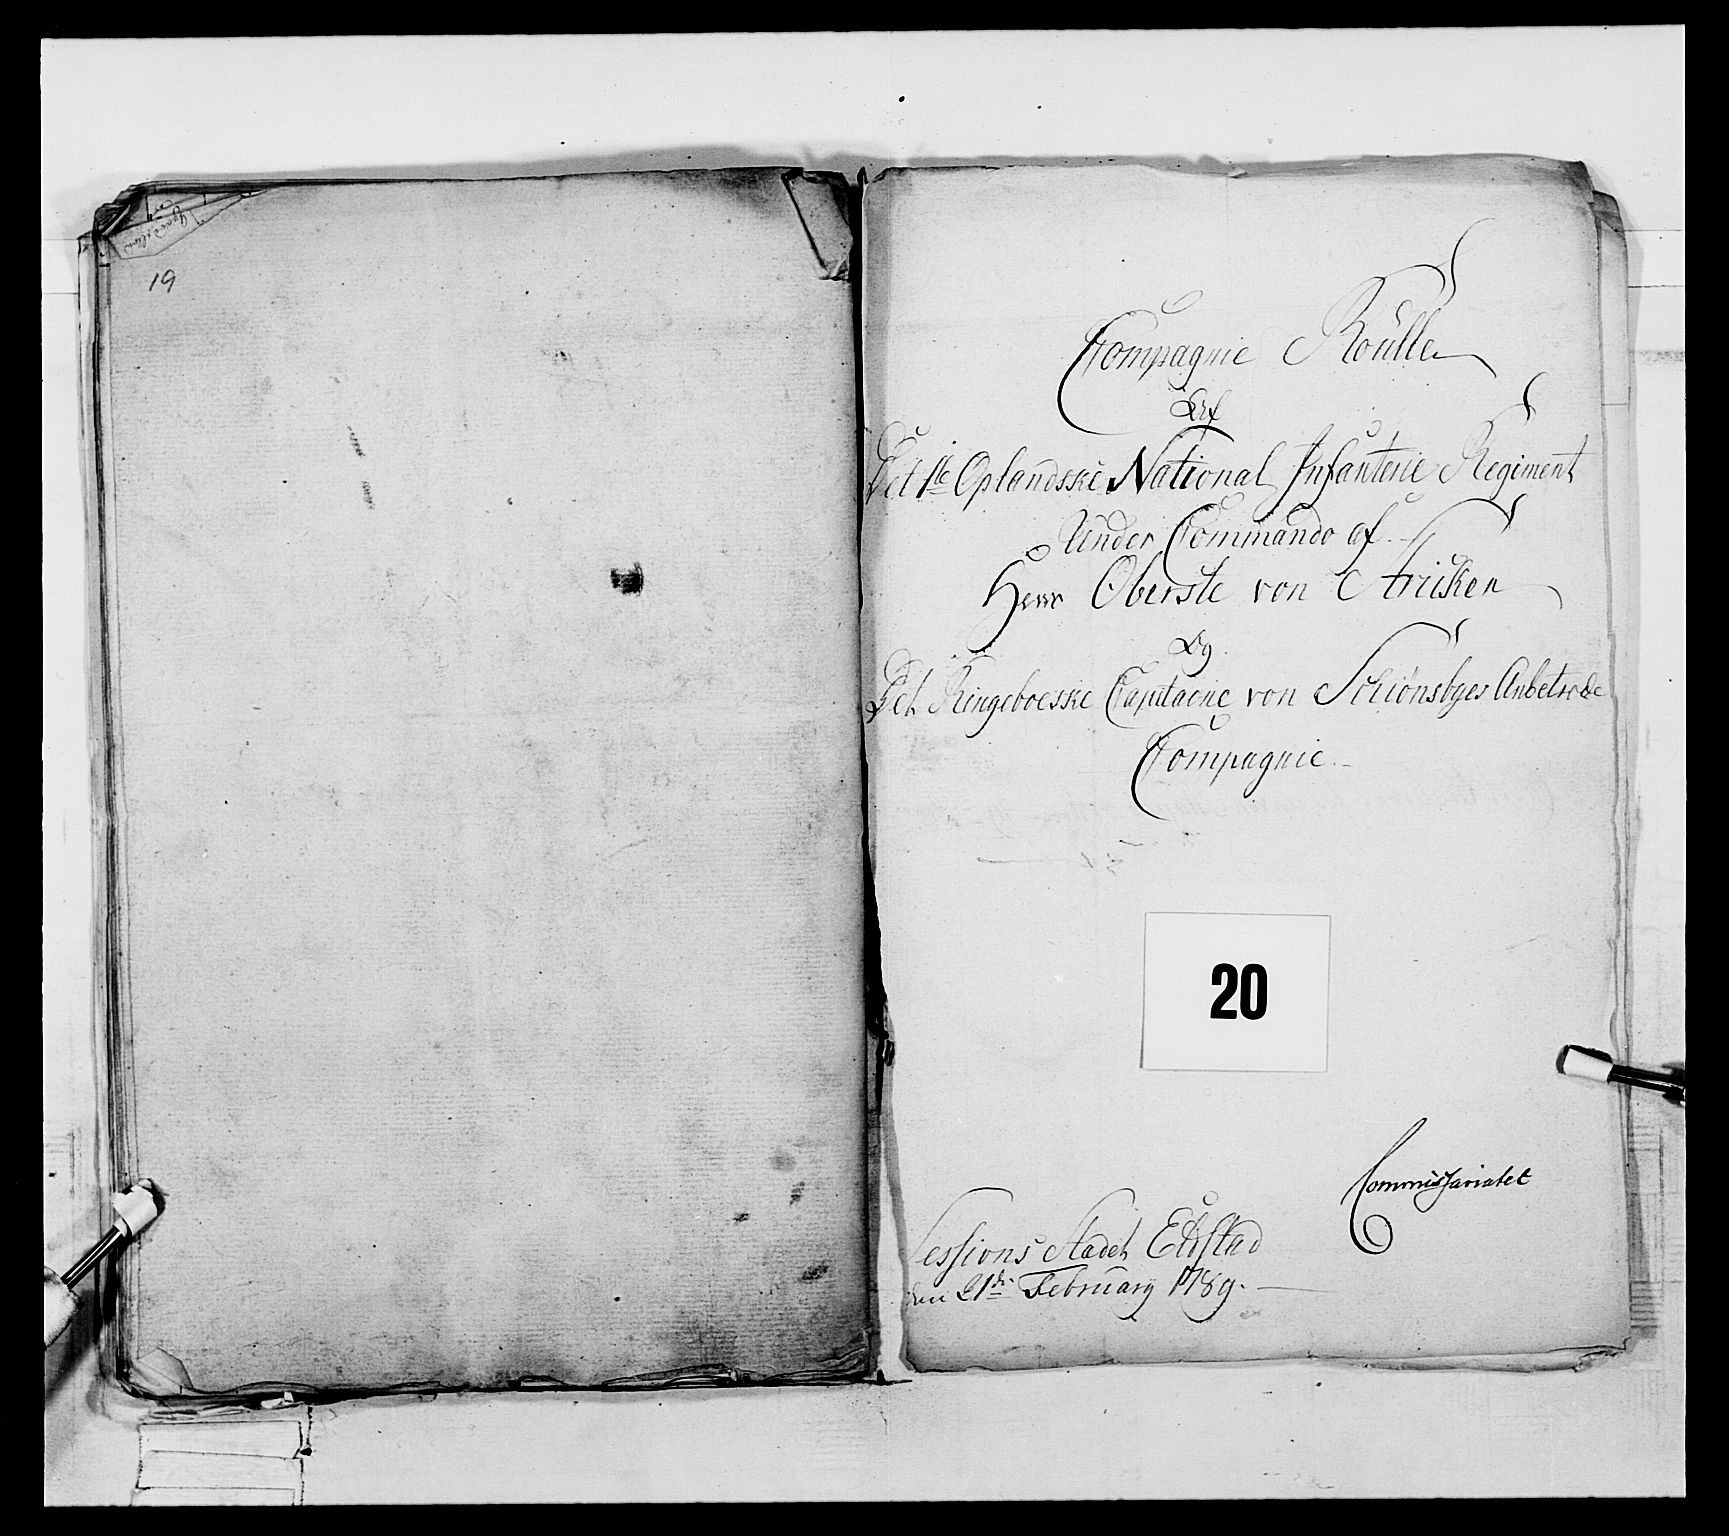 19
Compagnie Roulle
Af
Det 1te Oplandske National Infanterie Regiment
Under Commando af
Herr Oberste von Stricker
Og
Det Ringeboeske Capitaine von Schiønsbyes Anbetroede
Compagnie
20
Commissariatet
Sessions Stædet Eldstad
den 21de February 1789.